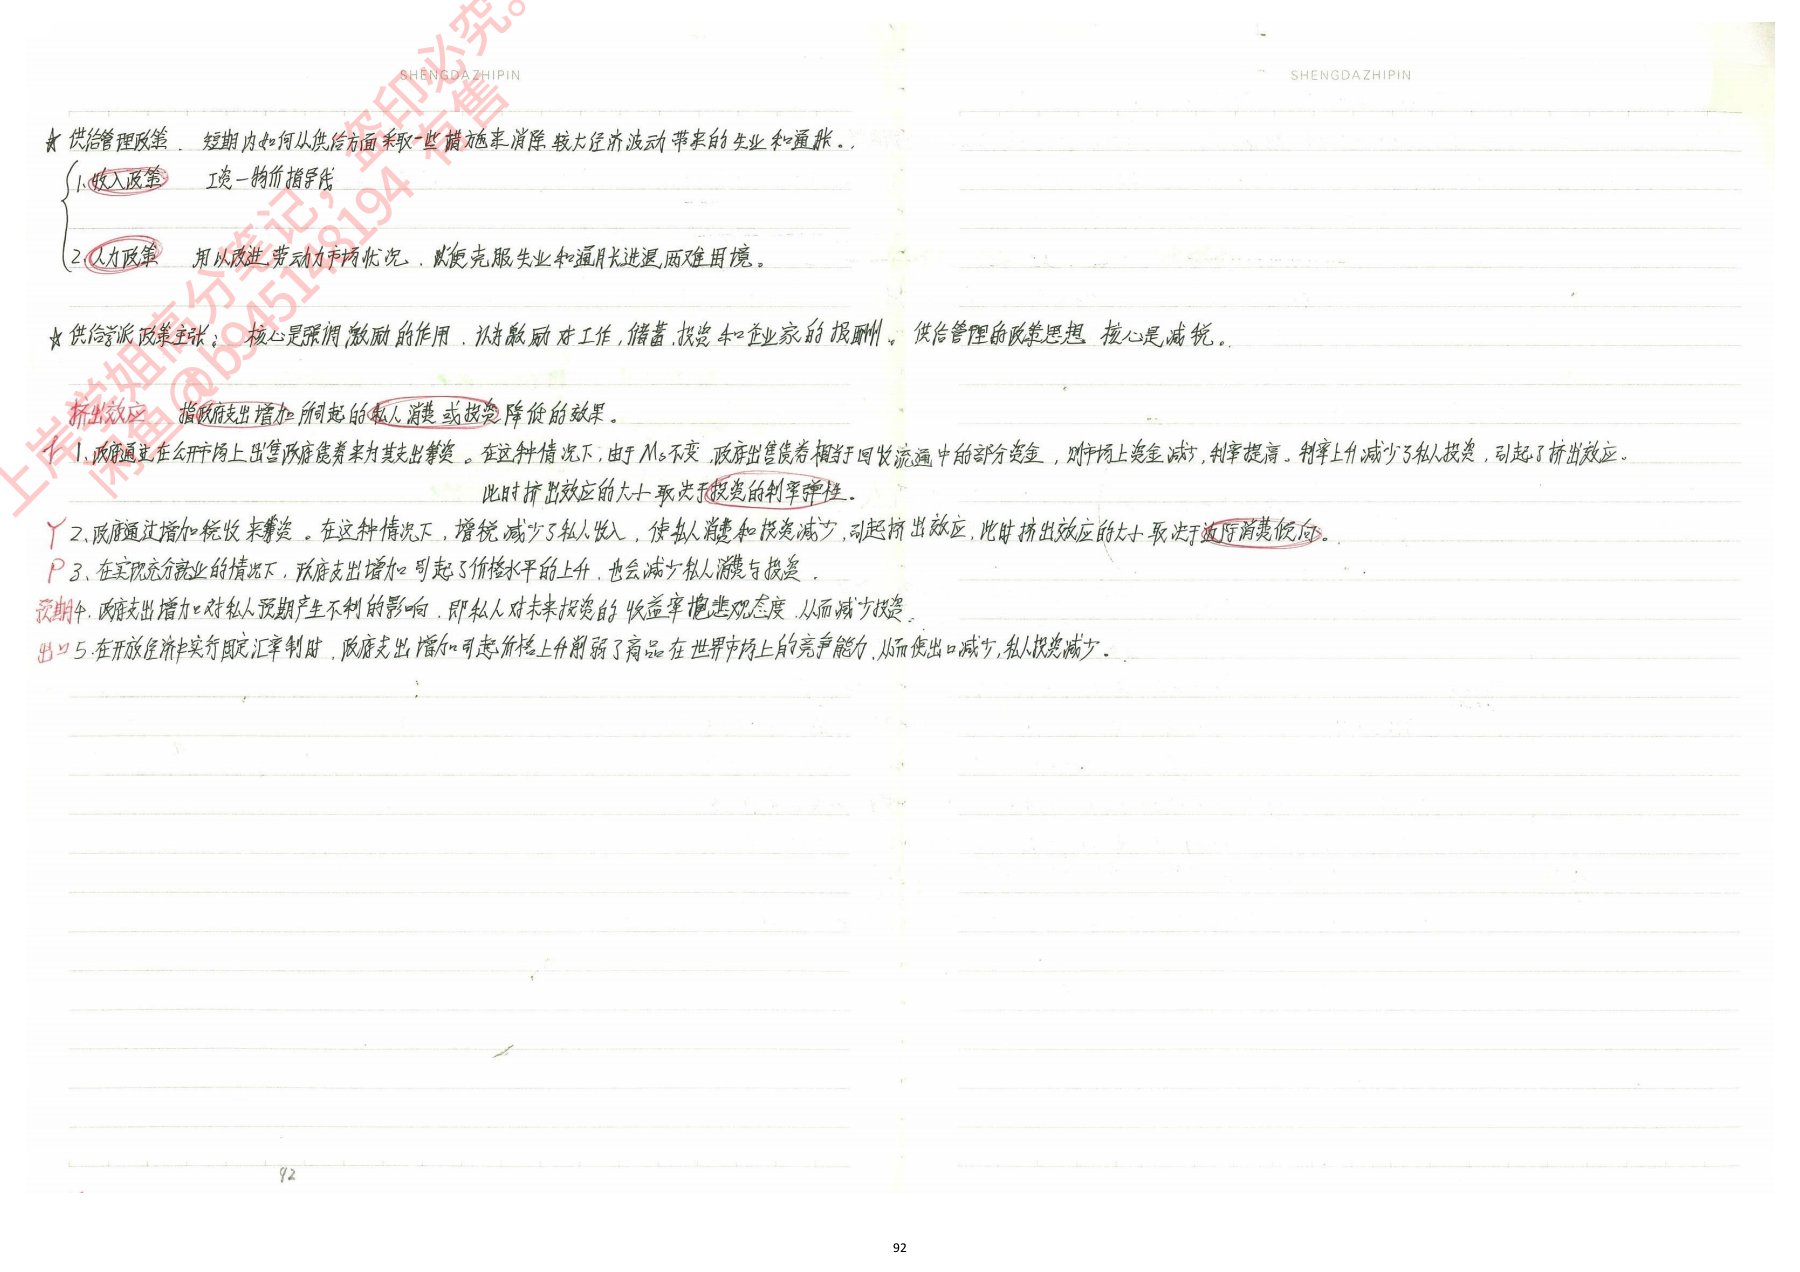 SHENGDAZHIPIN
SHENGDAZHIPIN
上岸学姐高分笔记，盗印必究。
闲鱼@b945148194 有售
☆ 供给管理政策. 短期内如何从供给方面采取一些措施来消除较大经济波动带来的失业和通胀。
1. 收入政策 工资—物价指导线
2. 人力政策 用以改进劳动力市场状况、以便克服失业和通胀进退两难困境。
☆ 供给学派政策主张： 核心是强调激励的作用、认为激励对工作,储蓄,投资和企业家的报酬。 供给管理的政策思想 核心是减税。
挤出效应 指政府支出增加所引起的私人消费或投资降低的效果。
r 1、政府通过在公开市场上出售政府债券来为其支出筹资。在这种情况下,由于Ms不变,政府出售债券相当于回收流通中的部分资金，则市场上资金减少,利率提高。利率上升减少了私人投资，引起了挤出效应。
此时挤出效应的大小取决于投资的利率弹性。
Y 2、政府通过增加税收来筹资。在这种情况下，增税减少了私人收入，使私人消费和投资减少,引起挤出效应，此时挤出效应的大小取决于边际消费倾向。
P 3、在实现充分就业的情况下，政府支出增加引起了价格水平的上升、也会减少私人消费与投资.
预期 4、政府支出增加对私人预期产生不利的影响，即私人对未来投资的收益率抱悲观态度、从而减少投资。
出口 5.在开放经济中实行固定汇率制时，政府支出增加引起价格上升削弱了商品在世界市场上的竞争能力、从而使出口减少,私人投资减少。
92
92